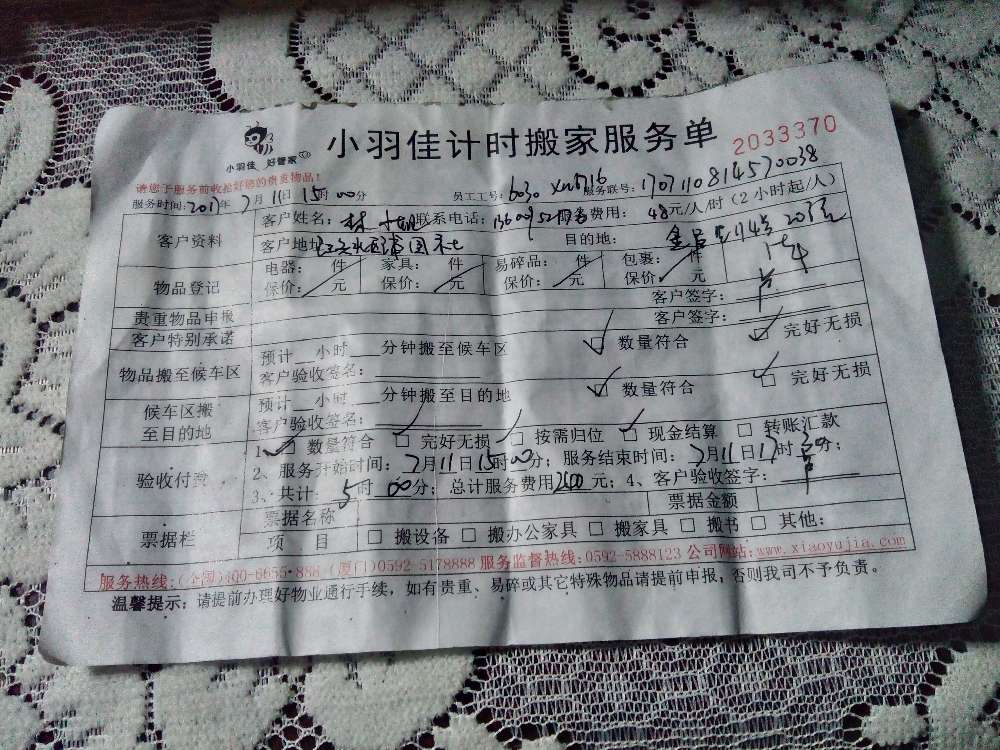 小羽佳 好管家
小羽佳计时搬家服务单
2033370
请您于服务前收拾好您的贵重物品!
服务时间:2017年7月11日15时00分 员工工号:6030 服务联号:1707110814570038
客户资料
客户姓名:林 联系电话: 服务费用:48元/人/时(2小时起/人)
客户地址: 目的地:
物品登记
电器: 件 家具: 件 易碎品: 件 包裹: 件
保价: 元 保价: 元 保价: 元 保价: 元
贵重物品申报 客户签字:
客户特别承诺 客户签字:
物品搬至候车区
预计 小时 分钟搬至候车区 数量符合 完好无损
客户验收签名:
候车区搬至目的地
预计 小时 分钟搬至目的地 数量符合 完好无损
客户验收签名:
验收付费
1、 数量符合 完好无损 按需归位 现金结算 转账汇款
2、服务开始时间:7月11日15时00分;服务结束时间:7月11日17时 分;
3、共计:5时00分;总计服务费用2400元;4、客户验收签字:
票据栏
票据名称 票据金额
项 目 搬设备 搬办公家具 搬家具 搬书 其他:
服务热线:(全国)400-6655-888 (厦门)0592-5178888 服务监督热线:0592-5888123 公司网站:www.xiaoyujia.com
温馨提示:请提前办理好物业通行手续,如有贵重、易碎或其它特殊物品请提前申报,否则我司不予负责。